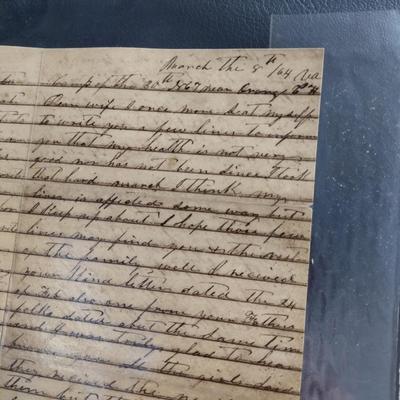 March the 8th /64 Va
Camp of the 20th N.C. near Orange
Dear wife I once more seat myself
to write you a few lines to inform
you that my health is not very
good nor has not been since I took
that hard march I think my
liver is affected some way but
I keep up about I hope those few
lines may find you & the rest
of the family well I received
your kind letter dated the 21
of Feb also one from your Fathers
folks dated about the same time
and I was truly glad to hear
from you all the girls
they received the
them but